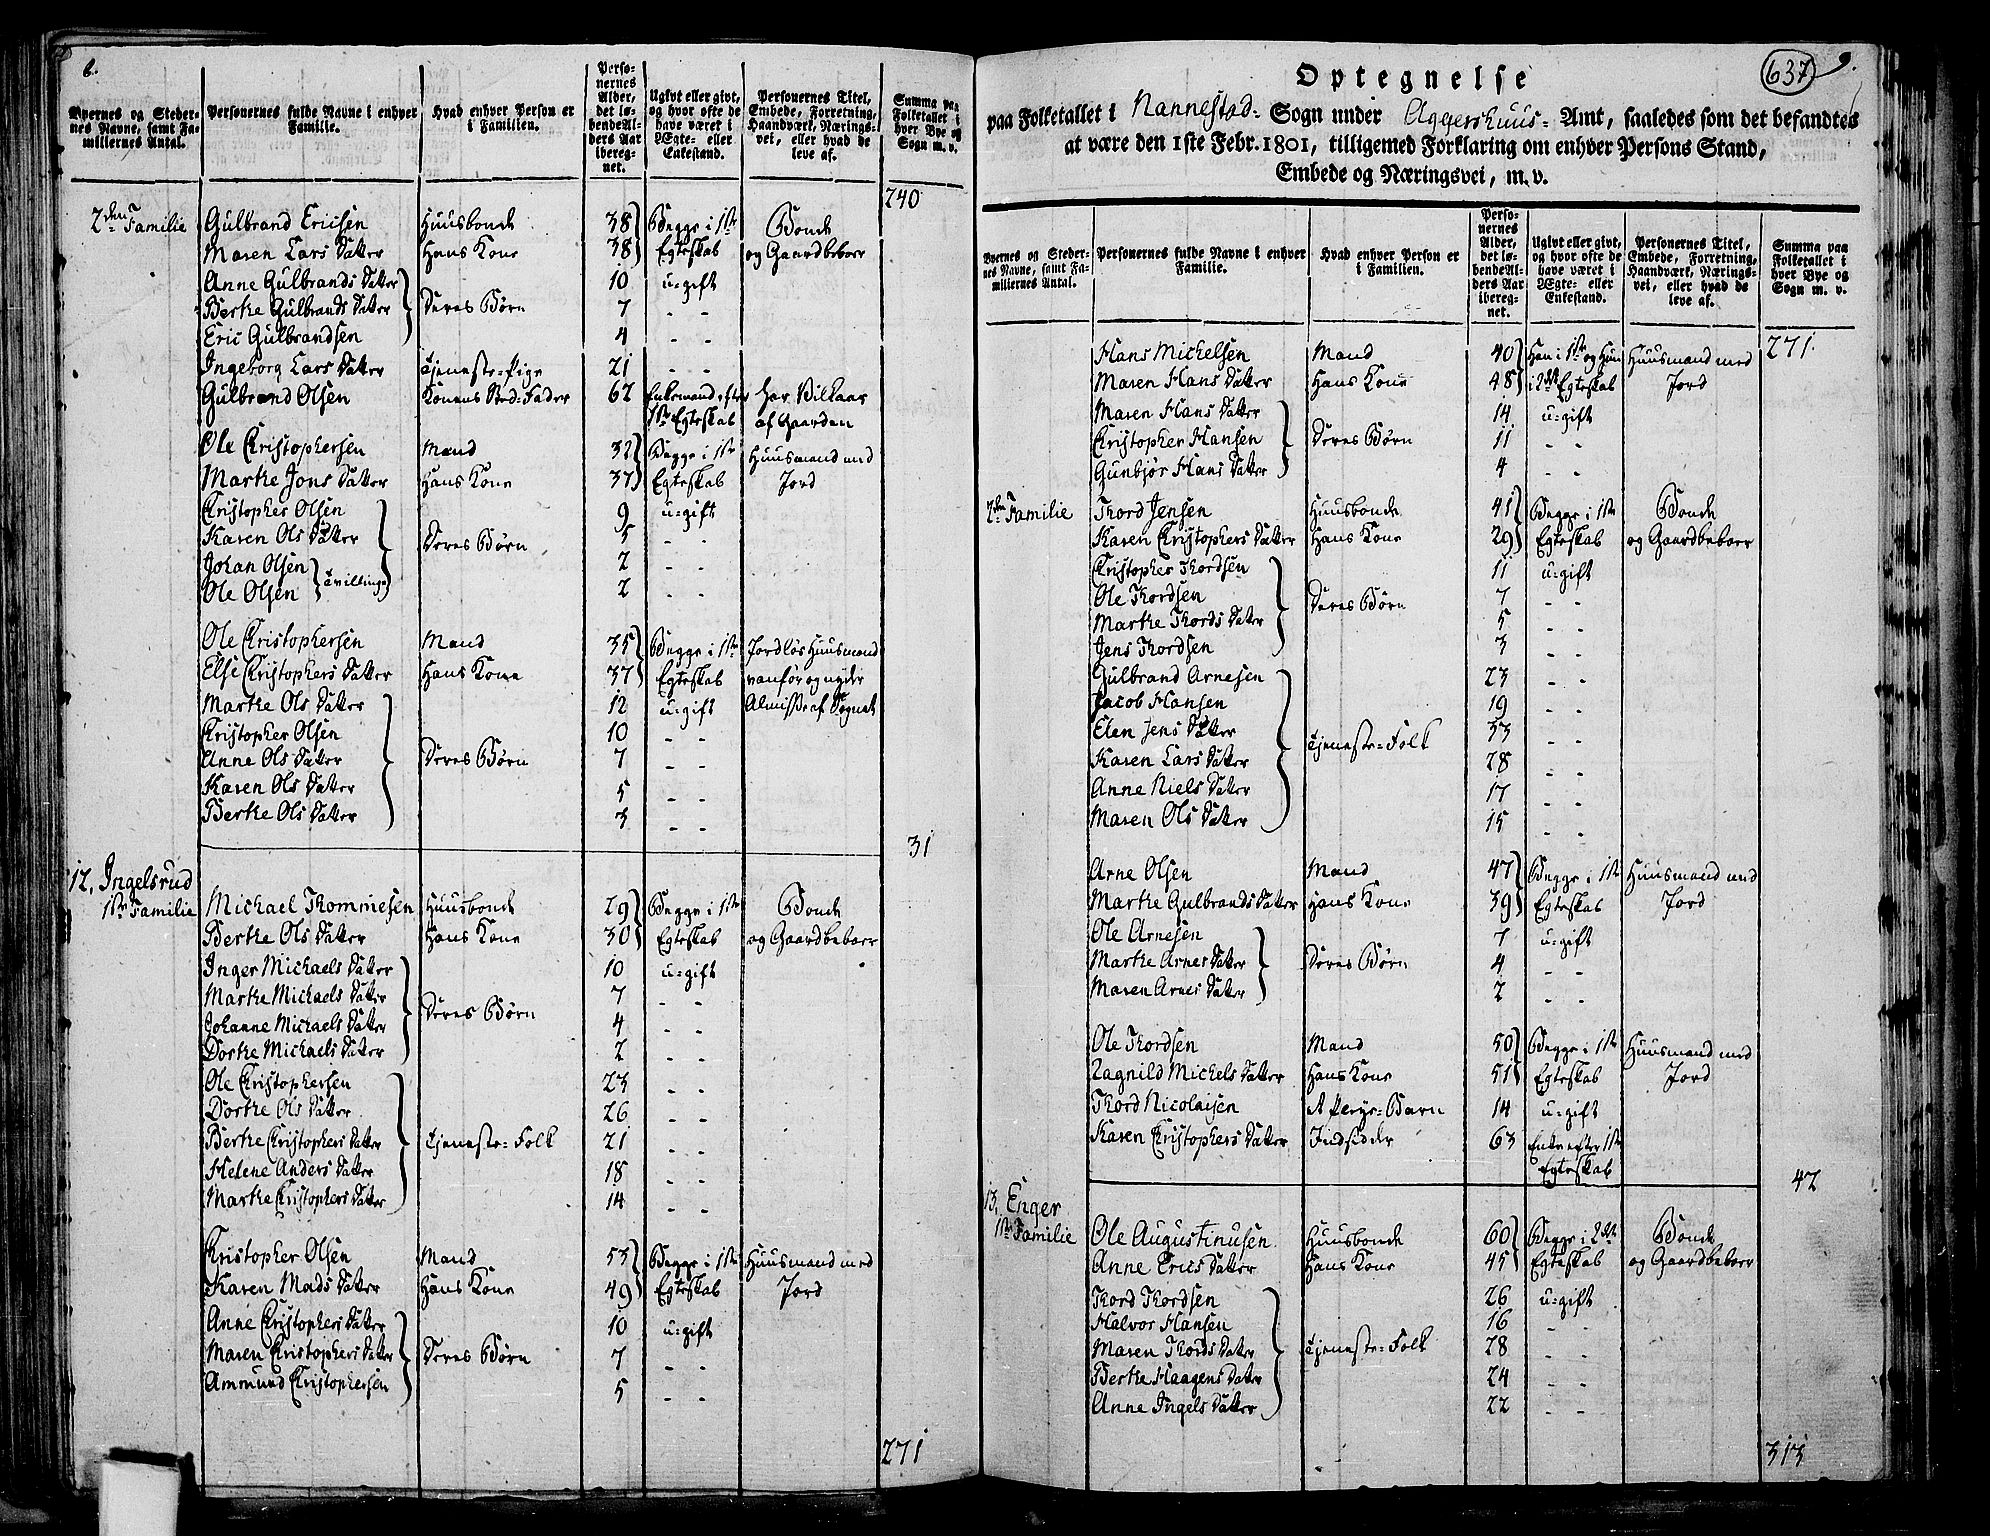 6.
Byernes og Steder-
nes Navne, samt Fa-
miliernes Antal.
Personernes fulde Navne i enhver
Familie.
Hvad enhver Person er
i Familien.
Perso-
nernes
Alder,
det lø-
bende Al-
ders Aar
ibereg-
net.
Ugivt eller givt,
og hvor ofte de
have været i
Ægte- eller
Enkestand.
Personernes Titel,
Embede, Forretning,
Haandværk, Nærings-
vei, eller hvad de
leve af.
Summa paa
Folketallet i
hver Bye og
Sogn m. v.
240
2den Familie Gulbrand Ericsen Huusbonde 38 Begge i 1ste Bonde
Maren Lars Datter Hans Kone 38 Egteskab og Gaardbeboer
Anne Gulbrands Datter 10 u:gift
Berthe Gulbrands Datter Deres Børn 7 - -
Eric Gulbrandsen 4 - -
Ingeborg Lars Datter Tjeneste-Pige 21 - -
Gulbrand Olsen Konens Sted-Fader 62 Enkemand efter Har Vilkaar
1ste Egteskab af Gaarden
Ole Christophersen Mand 32 Begge i 1ste Huusmand med
Marthe Jons Datter Hans Kone 37 Egteskab Jord
Christopher Olsen 9 u:gift
Karen Ols Datter Deres Børn 5 - -
Johan Olsen Tvillinge 2 - -
Ole Olsen 2 - -
Ole Christophersen Mand 35 Begge i 1ste Jordløs Huusmand
Else Christophers Datter Hans Kone 37 Egteskab vanfør og nyder
Marthe Ols Datter 12 u:gift Almisse af Sognet
Christopher Olsen 10 - -
Anne Ols Datter Deres Børn 7 - -
Karen Ols Datter 5 - -
Berthe Ols Datter 3 - -
31
12, Ingelsrud
1ste Familie Michael Thommesen Huusbonde 29 Begge i 1ste Bonde
Berthe Ols Datter Hans Kone 30 Egteskab og Gaardbeboer
Inger Michaels Datter 10 u:gift
Marthe Michaels Datter Deres Børn 7 - -
Johanne Michaels Datter 4 - -
Dorthe Michaels Datter 2 - -
Ole Christophersen 23 - -
Dorthe Ols Datter 26 - -
Berthe Christophers Datter Tjeneste-Folk 21 - -
Helene Anders Datter 18 - -
Marthe Christophers Datter 14 - -
Christopher Olsen Mand 53 Begge i 1ste Huusmand med
Karen Mads Datter Hans Kone 49 Egteskab Jord
Anne Christophers Datter 10 u:gift
Maren Christophers Datter Deres Børn 7 - -
Ammund Christophersen 5 - -
271
637 9.
Optegnelse
paa Folketallet i Nannestad- Sogn under Aggershuus- Amt, saaledes som det befandtes
at være den 1ste Febr. 1801, tilligemed Forklaring om enhver Persons Stand,
Embede og Næringsvei, m. v.
Byernes og Steder-
nes Navne, samt Fa-
miliernes Antal.
Personernes fulde Navne i enhver
Familie.
Hvad enhver Person er
i Familien.
Perso-
nernes
Alder,
det lø-
bende Al-
ders Aar
ibereg-
net.
Ugivt eller givt,
og hvor ofte de
have været i
Ægte- eller
Enkestand.
Personernes Titel,
Embede, Forretning,
Haandværk, Nærings-
vei, eller hvad de
leve af.
Summa paa
Folketallet i
hver Bye og
Sogn m. v.
Hans Michelsen Mand 40 Han i 1ste og Hun Huusmand med 271.
Maren Hans Datter Hans Kone 48 i 2det Egteskab Jord
Maren Hans Datter 14 u:gift
Christopher Hansen Deres Børn 11 - -
Gunbjør Hans Datter 4 - -
2den Familie Thord Jensen Huusbonde 41 Begge i 1ste Bonde
Karen Christophers Datter Hans Kone 29 Egteskab og Gaardbeboer
Christopher Thordsen 11 u:gift
Ole Thordsen Deres Børn 7 - -
Marthe Thords Datter 5 - -
Jens Thordsen 3 - -
Gulbrand Arnesen 23 - -
Jacob Hansen 19 - -
Elen Jens Datter Tjeneste-Folk 33 - -
Karen Lars Datter 28 - -
Anne Niels Datter 17 - -
Maren Ols Datter 15 - -
Arne Olsen Mand 47 Begge i 1ste Huusmand med
Marthe Gulbrands Datter Hans Kone 39 Egteskab Jord
Ole Arnesen 7 u:gift
Marthe Arnes Datter Deres Børn 4 - -
Maren Arnes Datter 2 - -
Ole Thordsen Mand 50 Begge i 1ste Huusmand med
Ragnild Michels Datter Hans Kone 51 Egteskab Jord
Thord Nicolaisen Et Pleje-Barn 14 u:gift
Karen Christophers Datter Indsidder 63 Enke efter 1ste
Egteskab
42
13, Enger
1ste Familie Ole Augustinusen Huusbonde 60 Begge i 2det Bonde
Anne Erics Datter Hans Kone 45 Egteskab og Gaardbeboer
Thord Thordsen 26 u:gift
Halvor Hansen 16 - -
Maren Thords Datter Tjeneste-Folk 28 - -
Berthe Haagens Datter 24 - -
Anne Ingels Datter 22 - -
313